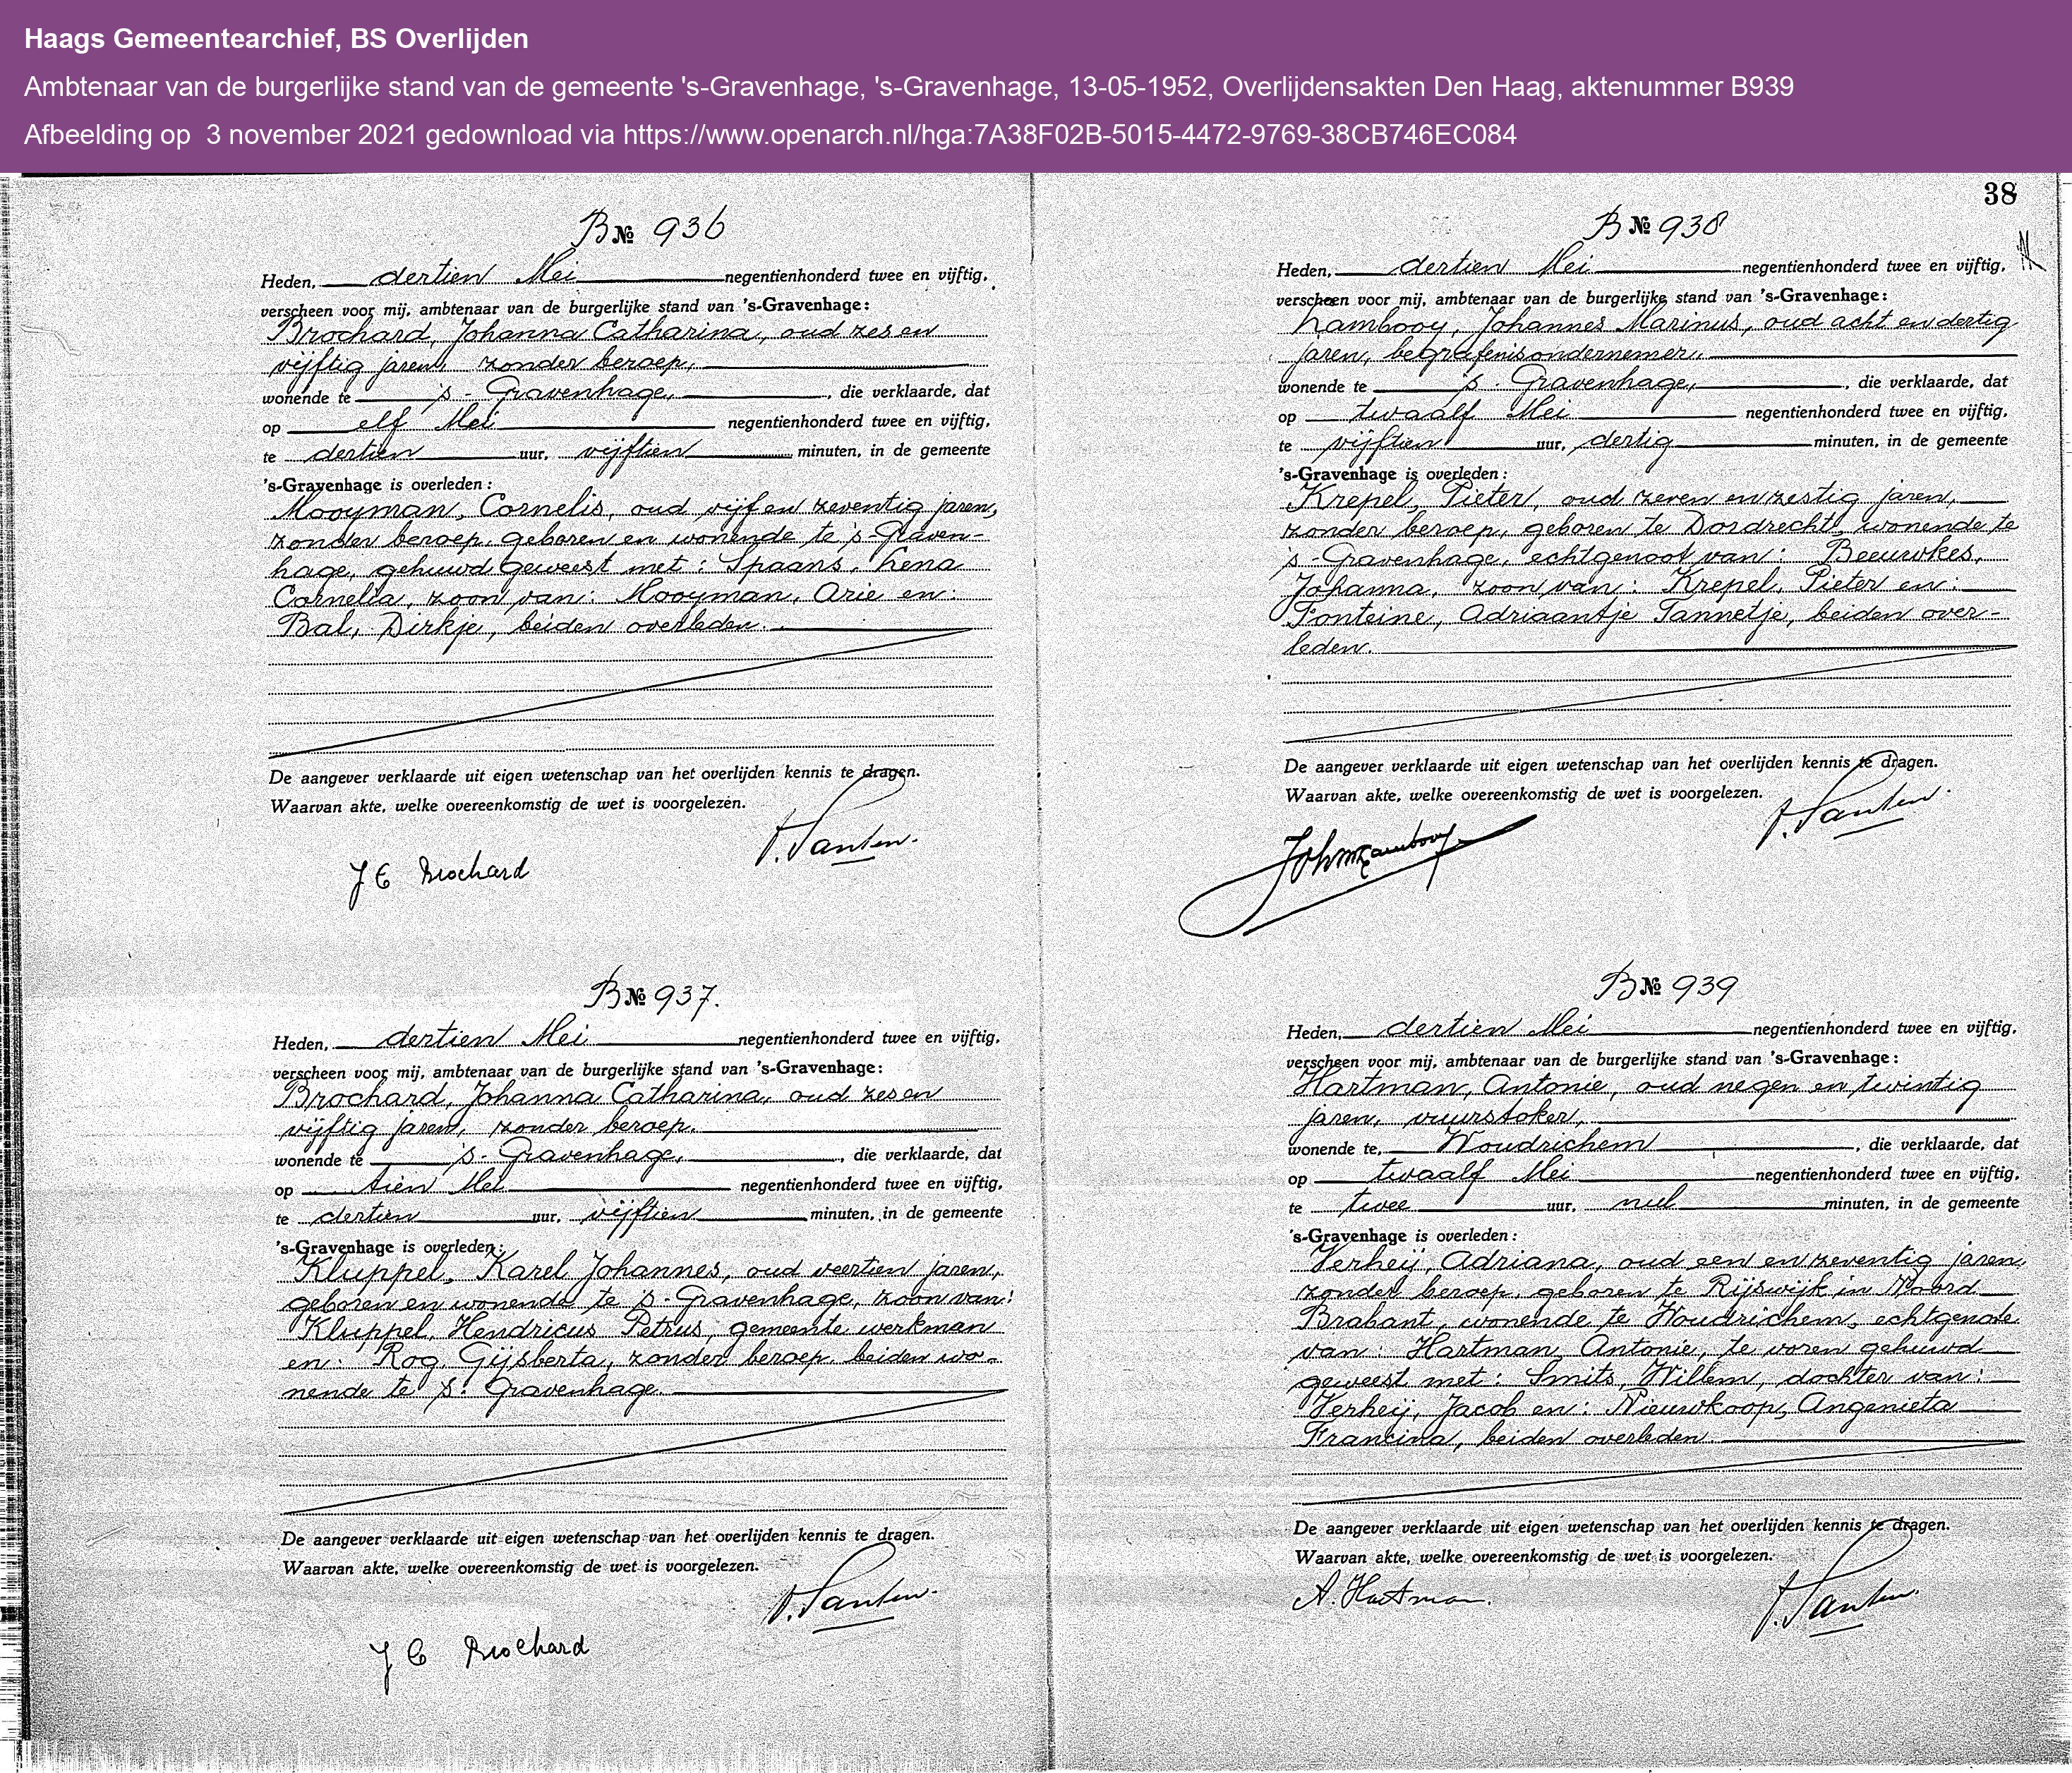 Haags Gemeentearchief, BS Overlijden
Ambtenaar van de burgerlijke stand van de gemeente 's-Gravenhage, 's-Gravenhage, 13-05-1952, Overlijdensakten Den Haag, aktenummer B939
Afbeelding op 3 november 2021 gedownload via https://www.openarch.nl/hga:7A38F02B-5015-4472-9769-38CB746EC084
B № 936
Heden, dertien Mei negentienhonderd twee en vijftig,
verscheen voor mij, ambtenaar van de burgerlijke stand van 's-Gravenhage:
Brochard, Johanna Catharina, oud zes en
vijftig jaren, zonder beroep,
wonende te 's-Gravenhage, die verklaarde, dat
op elf Mei negentienhonderd twee en vijftig,
te dertien uur, vijftien minuten, in de gemeente
's-Gravenhage is overleden:
Mooyman, Cornelis, oud vijf en zeventig jaren,
zonder beroep, geboren en wonende te 's-Graven-
hage, gehuwd geweest met: Spaans, Lena
Cornelia, zoon van: Mooyman, Arie en:
Bal, Dirkje, beiden overleden.
De aangever verklaarde uit eigen wetenschap van het overlijden kennis te dragen.
Waarvan akte, welke overeenkomstig de wet is voorgelezen.
v. Santen.
J C Brochard
B № 937.
Heden, dertien Mei negentienhonderd twee en vijftig,
verscheen voor mij, ambtenaar van de burgerlijke stand van 's-Gravenhage:
Brochard, Johanna Catharina, oud zes en
vijftig jaren, zonder beroep,
wonende te 's-Gravenhage, die verklaarde, dat
op tien Mei negentienhonderd twee en vijftig,
te dertien uur, vijftien minuten, in de gemeente
's-Gravenhage is overleden:
Kluppel, Karel Johannes, oud veertien jaren,
geboren en wonende te 's-Gravenhage, zoon van:
Kluppel, Hendricus Petrus, gemeente werkman
en: Rog, Gijsberta, zonder beroep, beiden wo-
nende te 's-Gravenhage.
De aangever verklaarde uit eigen wetenschap van het overlijden kennis te dragen.
Waarvan akte, welke overeenkomstig de wet is voorgelezen.
v. Santen.
J C Brochard
38
B № 938
Heden, dertien Mei negentienhonderd twee en vijftig,
verscheen voor mij, ambtenaar van de burgerlijke stand van 's-Gravenhage:
Lambooy, Johannes Marinus, oud acht en dertig
jaren, begrafenisondernemer,
wonende te 's-Gravenhage, die verklaarde, dat
op twaalf Mei negentienhonderd twee en vijftig,
te vijftien uur, dertig minuten, in de gemeente
's-Gravenhage is overleden:
Krepel, Pieter, oud zeven en zestig jaren,
zonder beroep, geboren te Dordrecht, wonende te
's-Gravenhage, echtgenoot van: Beeuwkes,
Johanna, zoon van: Krepel, Pieter en:
Fonteine, Adriaantje Tannetje, beiden over-
leden.
De aangever verklaarde uit eigen wetenschap van het overlijden kennis te dragen.
Waarvan akte, welke overeenkomstig de wet is voorgelezen.
v. Santen.
B № 939
Heden, dertien Mei negentienhonderd twee en vijftig,
verscheen voor mij, ambtenaar van de burgerlijke stand van 's-Gravenhage:
Hartman, Antonie, oud negen en twintig
jaren, vuurstoker,
wonende te, Woudrichem, die verklaarde, dat
op twaalf Mei negentienhonderd twee en vijftig,
te twee uur, nul minuten, in de gemeente
's-Gravenhage is overleden:
Verheij, Adriana, oud een en zeventig jaren,
zonder beroep, geboren te Rijswijk in Noord
Brabant, wonende te Woudrichem, echtgenote
van: Hartman, Antonie, te voren gehuwd
geweest met: Smits, Willem, dochter van:
Verheij, Jacob en: Nieuwkoop, Angenieta
Francina, beiden overleden.
De aangever verklaarde uit eigen wetenschap van het overlijden kennis te dragen.
Waarvan akte, welke overeenkomstig de wet is voorgelezen.
A. Hartman.
v. Santen.